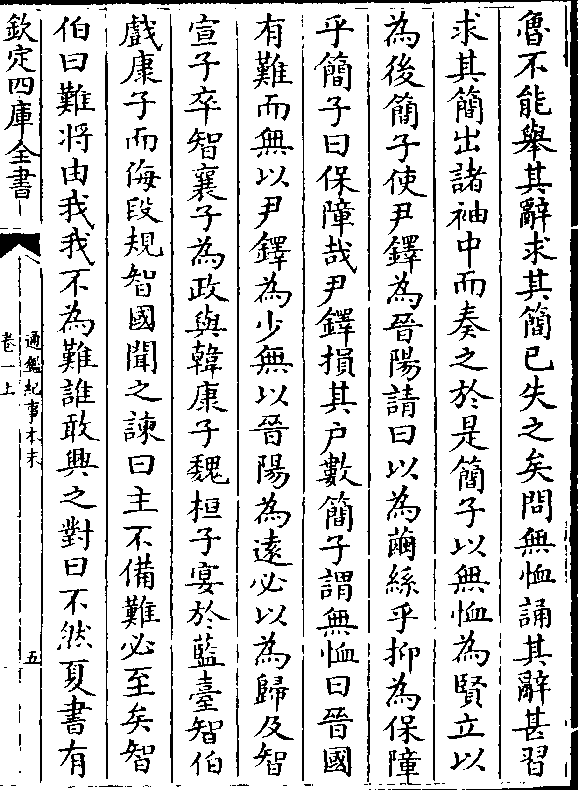 魯不能舉其辭求其簡已失之矣問無恤誦其辭甚習
求其簡出諸袖中而奏之於是簡子以無恤為賢立以
為後簡子使尹鐸為晉陽請曰以為繭絲乎抑為保障
乎簡子曰保障哉尹鐸損其户數簡子謂無恤曰晉國
有難而無以尹鐸為少無以晉陽為逺必以為歸及智
宣子卒智襄子為政與韓康子魏桓子宴於藍臺智伯
戲康子而侮段規智國聞之諫曰主不備難必至矣智
伯曰難将由我我不為難誰敢興之對曰不然夏書有
欽定四庫全書
通鑑紀事本末
卷一上
五